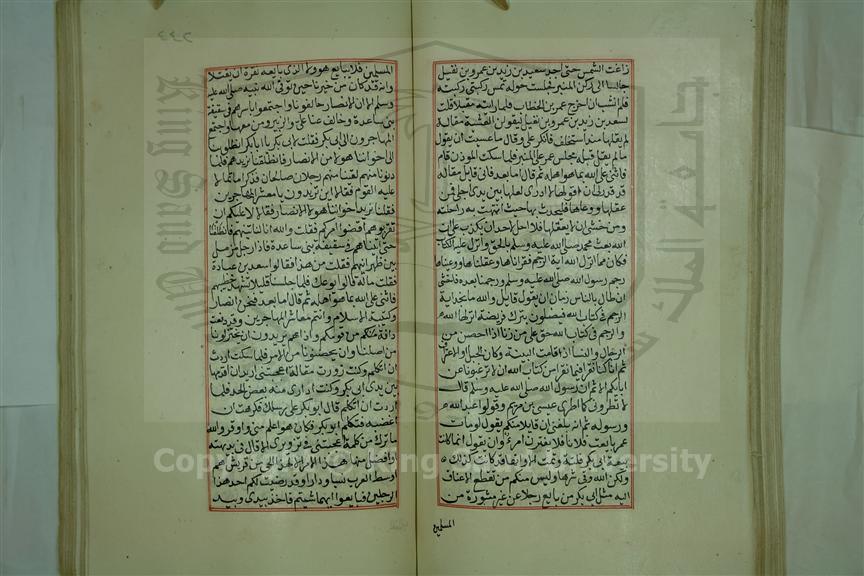 زاغت الشمس حتى اجد سعيد بن زيد بن عمرو بن نفيل
جالسا الى ركن المنبر فجلست حوله تمس ركبتي ركبته
فلم انشب ان اخرج عمر بن الخطاب فلما رايته مقبلا قلت
لسعيد بن زيد بن عمرو بن نفيل ليقولن العشية مقالة
لم يقلها منذ استخلف فانكر علي وقال ما عسيت ان يقول
ما لم يقل قبله فجلس عمر على المنبر فلما سكت الموذن قام
فاثنى على الله بما هو اهله ثم قال اما بعد فاني قايل مقالة
قد قدر لي ان اقولها لا ادري لعلها بين يدي اجلي فمن
عقلها ووعاها فليحدث بها حيث انتهت به راحلته
ومن خشي ان لا يعقلها فلا احل لاحد ان يكذب علي ان
الله بعث محمد صلى الله عليه وسلم بالحق وانزل عليه الكتاب
فكان مما انزل الله اية الرجم فقراناها وعقلناها ووعيناها
رجم رسول الله صلى الله عليه وسلم ورجمنا بعده فاخشى
ان طال بالناس زمان ان يقول قايل والله ما نجد اية
الرجم في كتاب الله فيضلون بترك فريضة انزلها الله
والرجم في كتاب الله حق على من زنا اذا احصن من
الرجال والنسا اذا قامت البينة وكان الحبل او الاعتراف
ثم انا كنا نقرا فيما نقرا من كتاب الله ان لا ترغبوا عن
ابايكم الا ثم ان رسول الله صلى الله عليه وسلم قال
لا تطروني كما اطري عيسى بن مريم وقولوا عبد الله
ورسوله ثم انه بلغني ان قايلا منكم يقول لو مات
عمر بايعت فلانا فلا يغترن امرؤ ان يقول انما كانت
بيعة ابي بكر فلتة وتمت الا وانها قد كانت كذلك
ولكن الله وقى شرها وليس منكم من تقطع الاعناق
اليه مثل ابي بكر من بايع رجلا عن غير مشورة من
المسلمين
المسلمين فلا يبايع هو ولا الذي بايعه تغرة ان يقتلا
وانه قد كان من خبرنا حين توفى الله نبيه صلى الله عليه
وسلم الا ان الانصار خالفونا واجتمعوا باسرهم في سقيفة
بني ساعدة وخالف عنا علي والزبير ومن معهما واجتمع
المهاجرون الى ابي بكر فقلت لابي بكر يا ابا بكر انطلق بنا
الى اخواننا هولا من الانصار فانطلقنا نريدهم فلما
دنونا منهم لقينا منهم رجلان صالحان فذكرا ما تمالا
عليه القوم فقالا اين تريدون يا معشر المهاجرين
فقلنا نريد اخواننا هولا من الانصار فقالا لا عليكم ان
لا تقربوهم اقضوا امركم فقلت والله لناتينهم فانطلقنا
حتى اتيناهم في سقيفة بني ساعدة فاذا رجل مزمل
بين ظهرانيهم فقلت من هذا فقالوا سعد بن عبادة
فقلت ماله قالوا يوعك فلما جلسنا قليلا تشهد خطيبهم
فاثنى على الله بما هو اهله ثم قال اما بعد فنحن انصار
وكتيبة الاسلام وانتم معاشر المهاجرين وقد دفت
دافة منكم من قومكم واذا هم يريدون ان يختزلونا
من اصلنا وان يحضنونا من الامر فلما سكت اردت
ان اتكلم وكنت زورت مقالة اعجبتني اريد ان اقدمها
بين يدي ابي بكر وكنت اداري منه بعض الحد فلما
اردت ان اتكلم قال ابو بكر على رسلك فكرهت ان
اغضبه فتكلم ابو بكر فكان هو اعلم مني واوقر والله
ما ترك من كلمة اعجبتني في تزويري الا قال في بديهته
او افضل منها هذا الامر الا لهذا الحي من قريش هم
اوسط العرب نسبا ودارا وقد رضيت لكم احد هذا
الرجلين فبايعوا ايهما شيتم فاخذ بيدي وبيد
Copyright © King Saud University
King Saud University
جامعة الملك